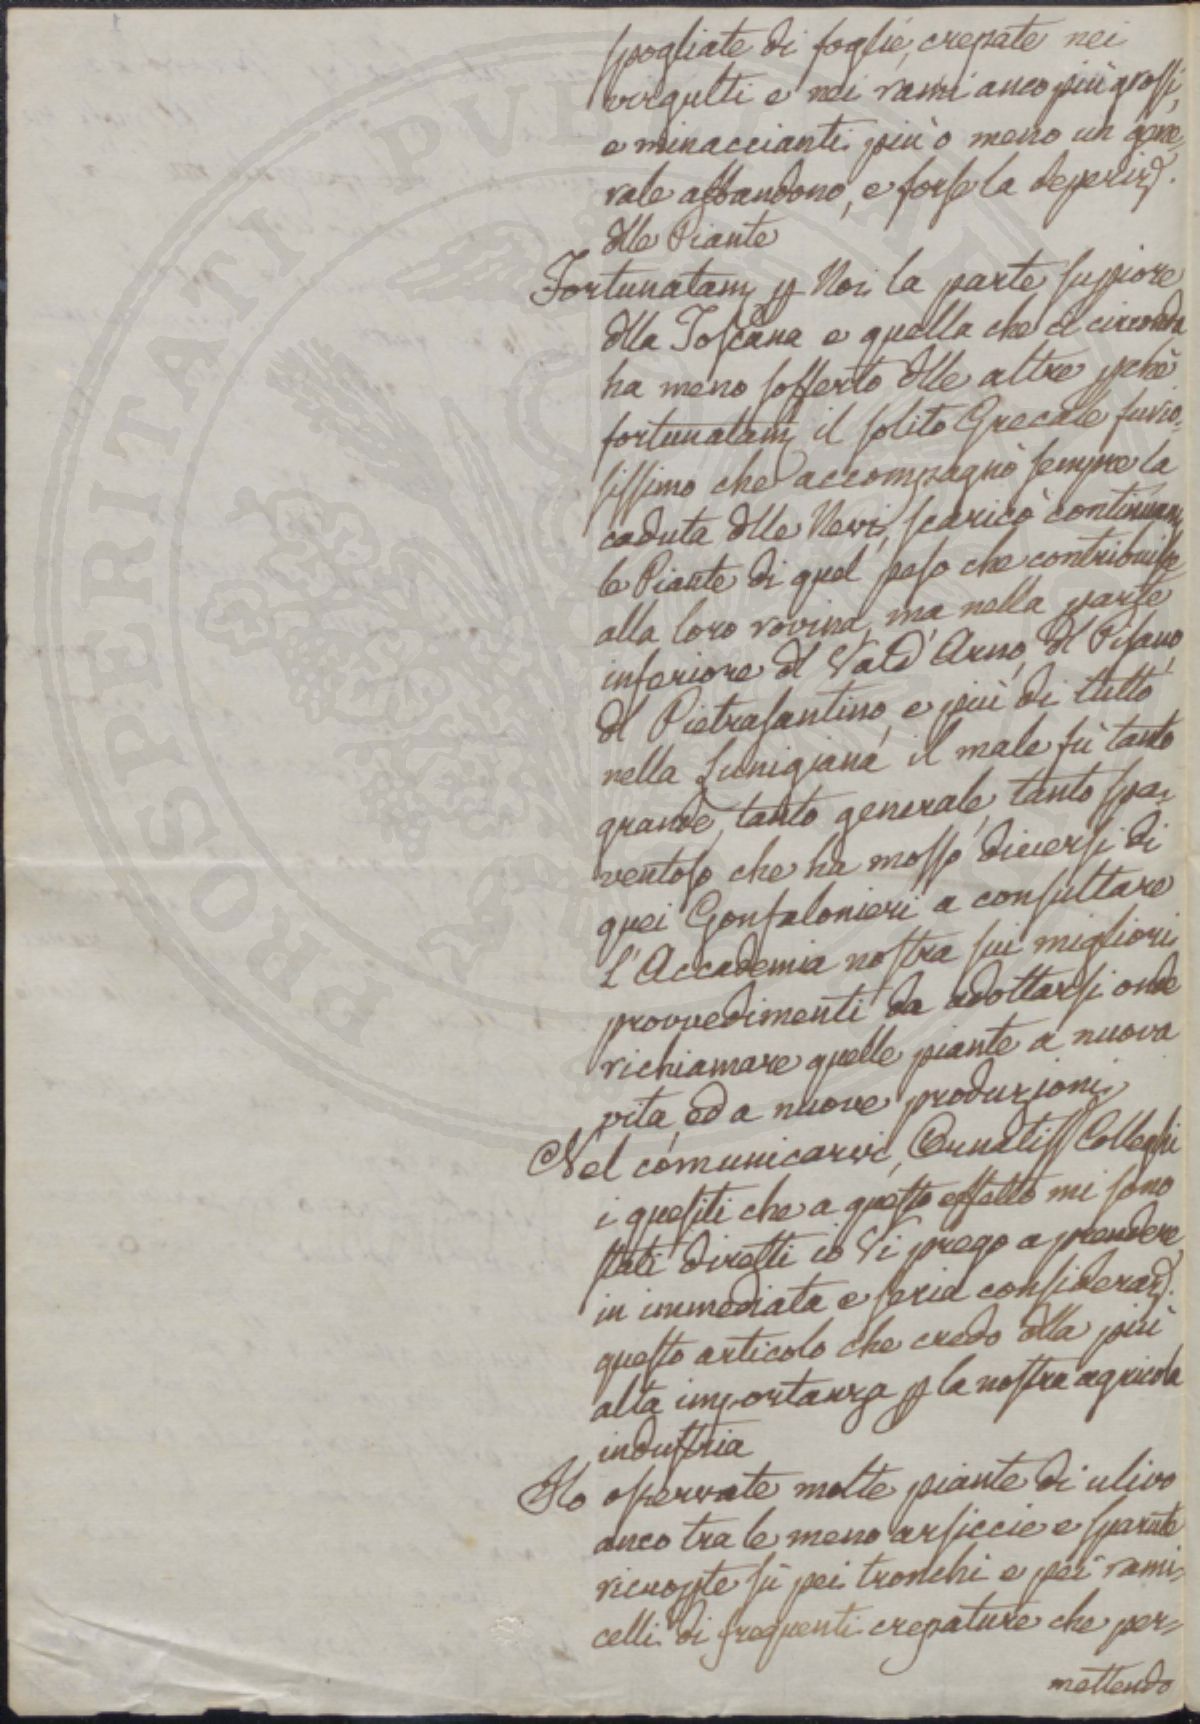 spogliate di foglie, crepate nei
virgulti e nei rami anco più grossi,
e minaccianti più o meno un gene-
rale abbandono, e forse la deperiz.
dlle Piante
Fortunatam p Noi la parte suppiore
dlla Toscana e quella che ci circonda
ha meno sofferto dlle altre pchè
fortunatam il solito Grecale furio-
sissimo che accompagnò sempre la
caduta dlle Nevi, scaricò continuam
le Piante di quel peso che contribuisce
alla loro rovina, ma nella parte
inferiore dl Val d'Arno, dl Pisano,
dl Pietrasantino, e più di tutto
nella Lunigiana il male fù tanto
grande, tanto generale, tanto spa-
ventoso che ha mosso diversi di
quei Gonfalonieri a consultare
L'Accademia nostra sui migliori
provvedimenti da adottarsi onde
richiamare quelle piante a nuova
vita, ed a nuove produzioni,
Nel comunicarvi, Ornatiss Colleghi
i quesiti che a questo effetto mi sono
stati diretti io Vi prego a prendere
in immediata e seria consideraz.
questo articolo che credo dlla più
alta importanza p la nostra agricola
industria
Ho osservate molte piante di ulivo
anco tra le meno arsiccie e sparute
ricuopte sù pei tronchi e pei rami-
celli di frequenti crepature che per-
mettendo
PROSPERITATI PUBLICAE